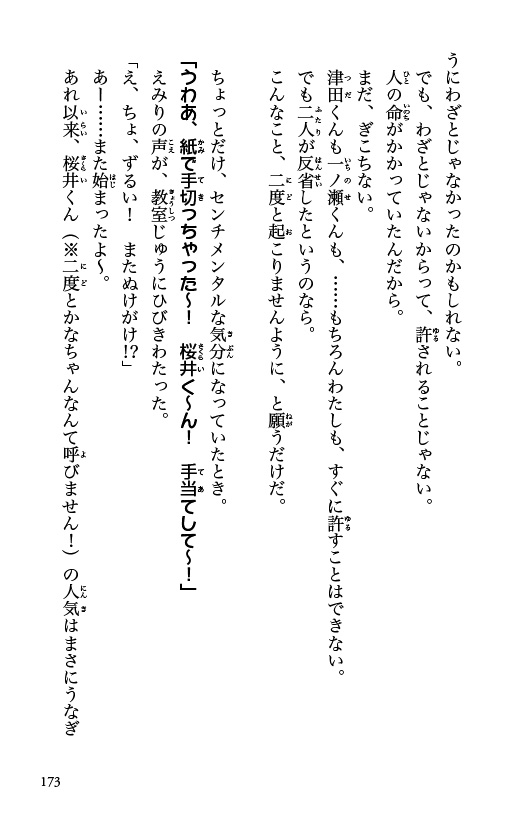 うにわざとじゃなかったのかもしれない。
でも、わざとじゃないからって、許されることじゃない。
人の命がかかっていたんだから。
まだ、ぎこちない。
津田くんも一ノ瀬くんも、……もちろんわたしも、すぐに許すことはできない。
でも二人が反省したというのなら。
こんなこと、二度と起こりませんように、と願うだけだ。
ちょっとだけ、センチメンタルな気分になっていたとき。
「うわあ、紙で手切っちゃった〜！　桜井く〜ん！　手当てして〜！」
えみりの声が、教室じゅうにひびきわたった。
「え、ちょ、ずるい！　またぬけがけ!?」
あー……また始まったよ〜。
あれ以来、桜井くん（※二度とかなちゃんなんて呼びません！）の人気はまさにうなぎ
173